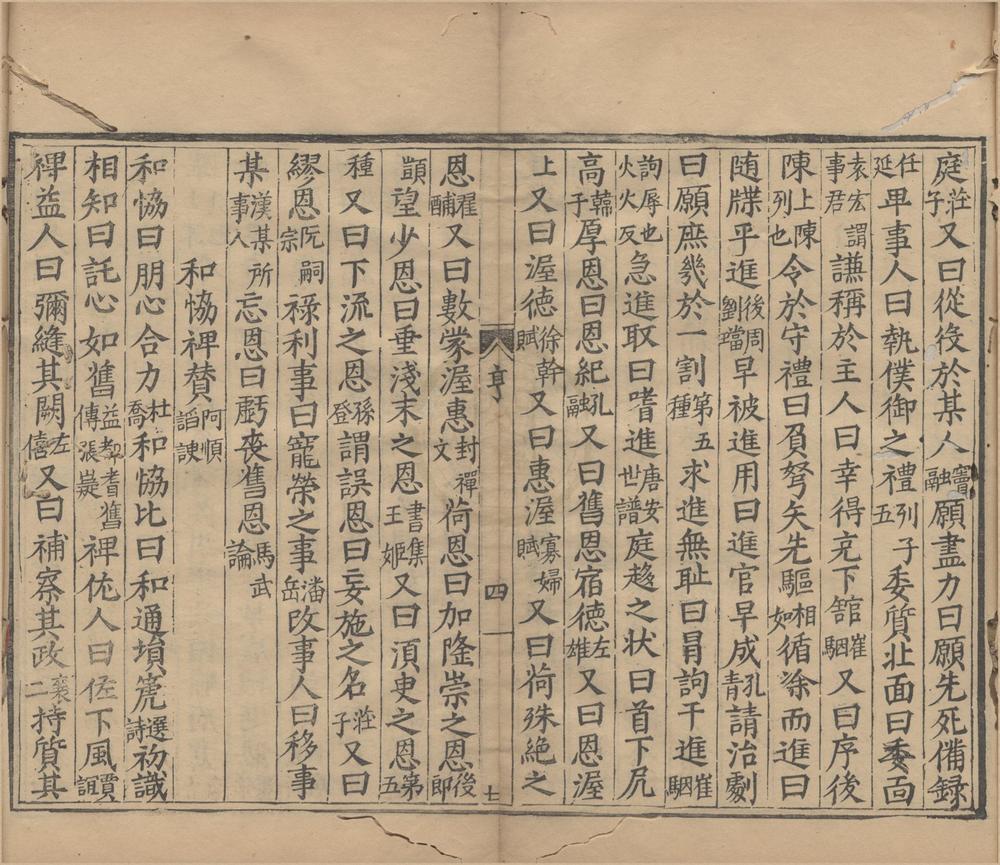 庭莊子又曰從役於某人竇融願盡力曰願先死備録
任延卑事人曰執僕御之禮列子五委質北面曰委面
袁宏事君謂謙稱於主人曰幸得充下舘崔駰又曰序後
陳上陳列也令於守禮曰負弩矢先驅相如循涂而進曰
随牒乎進後周劉璫早被進用曰進官早成孔青請治劇
曰願庶幾於一割第五種求進無耻曰冐訽干進崔駰
訽辱也火火反急進取曰嗜進唐安世譜庭趍之状曰首下尻
高韓子厚恩曰恩紀孔融又曰舊恩宿徳左雄又曰恩渥
上又曰渥徳徐幹賦又曰惠渥寡婦賦又曰荷殊絶之
亨 四一 七
恩翟酺又曰數蒙渥惠封禪文荷恩曰加隆崇之恩後郎
顗望少恩曰垂淺末之恩書集王姬又曰湏臾之恩第五
種又曰下流之恩孫登謂誤恩曰妄施之名莊子又曰
繆恩阮嗣宗禄利事曰寵榮之事潘岳改事人曰移事
某漢某事人所忘恩曰虧䘮舊恩馬武論
和恊禆賛阿順謟諛
和恊曰朋心合力杜喬和恊比曰和通塤箎選詩初識
相知曰託心如舊益部耆舊傳張嶷禆佐人曰佐下風賈誼
禆益人曰彌縫其闕左僖又曰補察其政襄二持質其